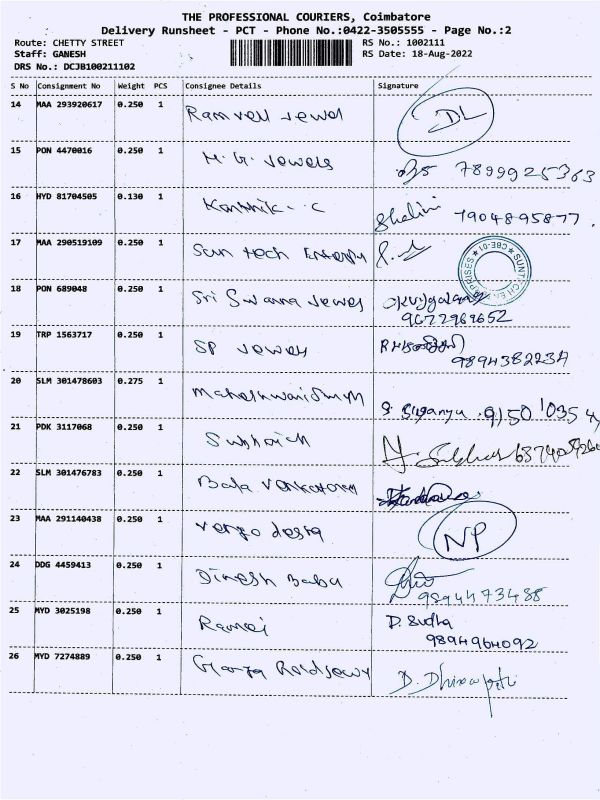 THE PROFESSIONAL COURIERS, Coimbatore
Delivery Runsheet - PCT - Phone No.:0422-3505555 - Page No.:2
Route: CHETTY STREET RS No.: 1002111
Staff: GANESH RS Date: 18-Aug-2022
DRS No.: DCJB100211102
S No Consignment No Weight PCS Consignee Details Signature
14 MAA 293920617 0.250 1 Ramvell Jewel DL
15 PON 4470016 0.250 1 M.G. Jewels 7899925363
16 HYD 81704505 0.130 1 Karthik - C Shalini 7904895877.
17 MAA 290519109 0.250 1 Sun tech SUNTECH ENTERPRISES CBE-01
18 PON 689048 0.250 1 Sri Swarna Jewel 9677969652
19 TRP 1563717 0.250 1 SP Jewels 9894382234
20 SLM 301478603 0.275 1
21 PDK 3117068 0.250 1
22 SLM 301476783 0.250 1 Bala
23 MAA 291140438 0.250 1 NP
24 DDG 4459413 0.250 1 Dinesh Babu 9894473488
25 MYD 3025198 0.250 1 D. Sudha
9894964092
26 MYD 7274889 0.250 1 D.